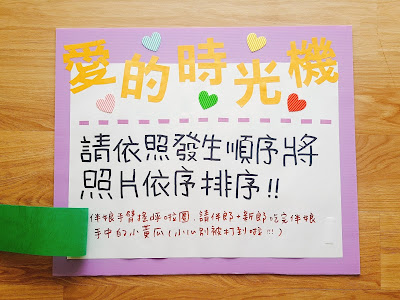 愛的時光機
請依照發生順序將
照片依序排序!!
伴娘手臂搖呼啦圈,請伴郎+新郎吃完伴娘
手中的小黃瓜(小心別被打到啦!!)